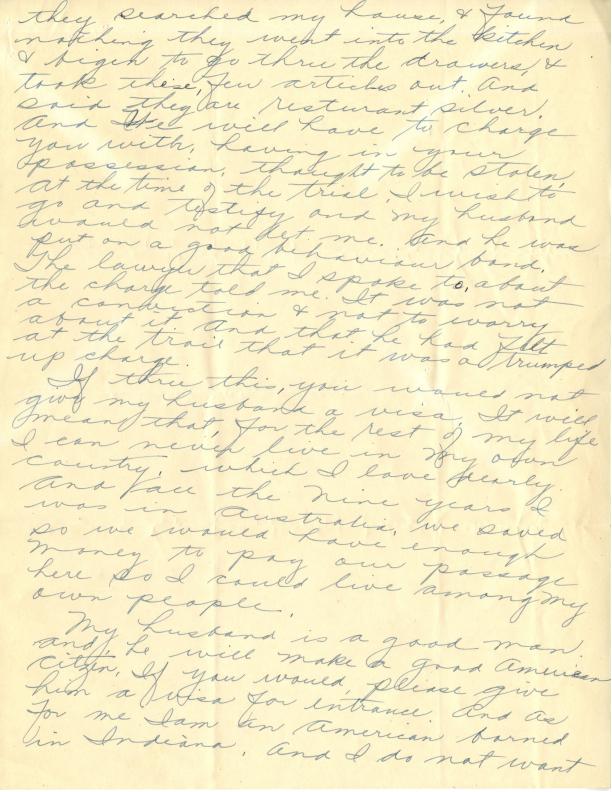 they searched my house, & found
nothing they went into the kitchen
& bigin to go thru the drawers, &
took these, few articles out. And
said they are resturant silver.
And We will have to charge
you with, having in your
possession, thought to be stolen,
at the time of the trial, I wish to
go and testify and my husband
would not let me. And he was
put on a good behaviour bond.
The lawyer that I spoke to, about
the charge told me. It was not
a conviction & not to worry
about it and that he had felt
at the trail that it was a trumped
up charge.
If three this, you would not
give my husband a visa. It will
mean that, for the rest of my life
I can never live in my own
country, which I love dearly.
And all the nine years I
was in Australia, we saved
so we would have enough
money to pay our passage
here so I could live among my
own people.
My husband is a good man.
and, he will make a good American
citizen, If you would, please give
him a visa for entrance. And as
for me I am an American borned
in Indiana. And I do not want